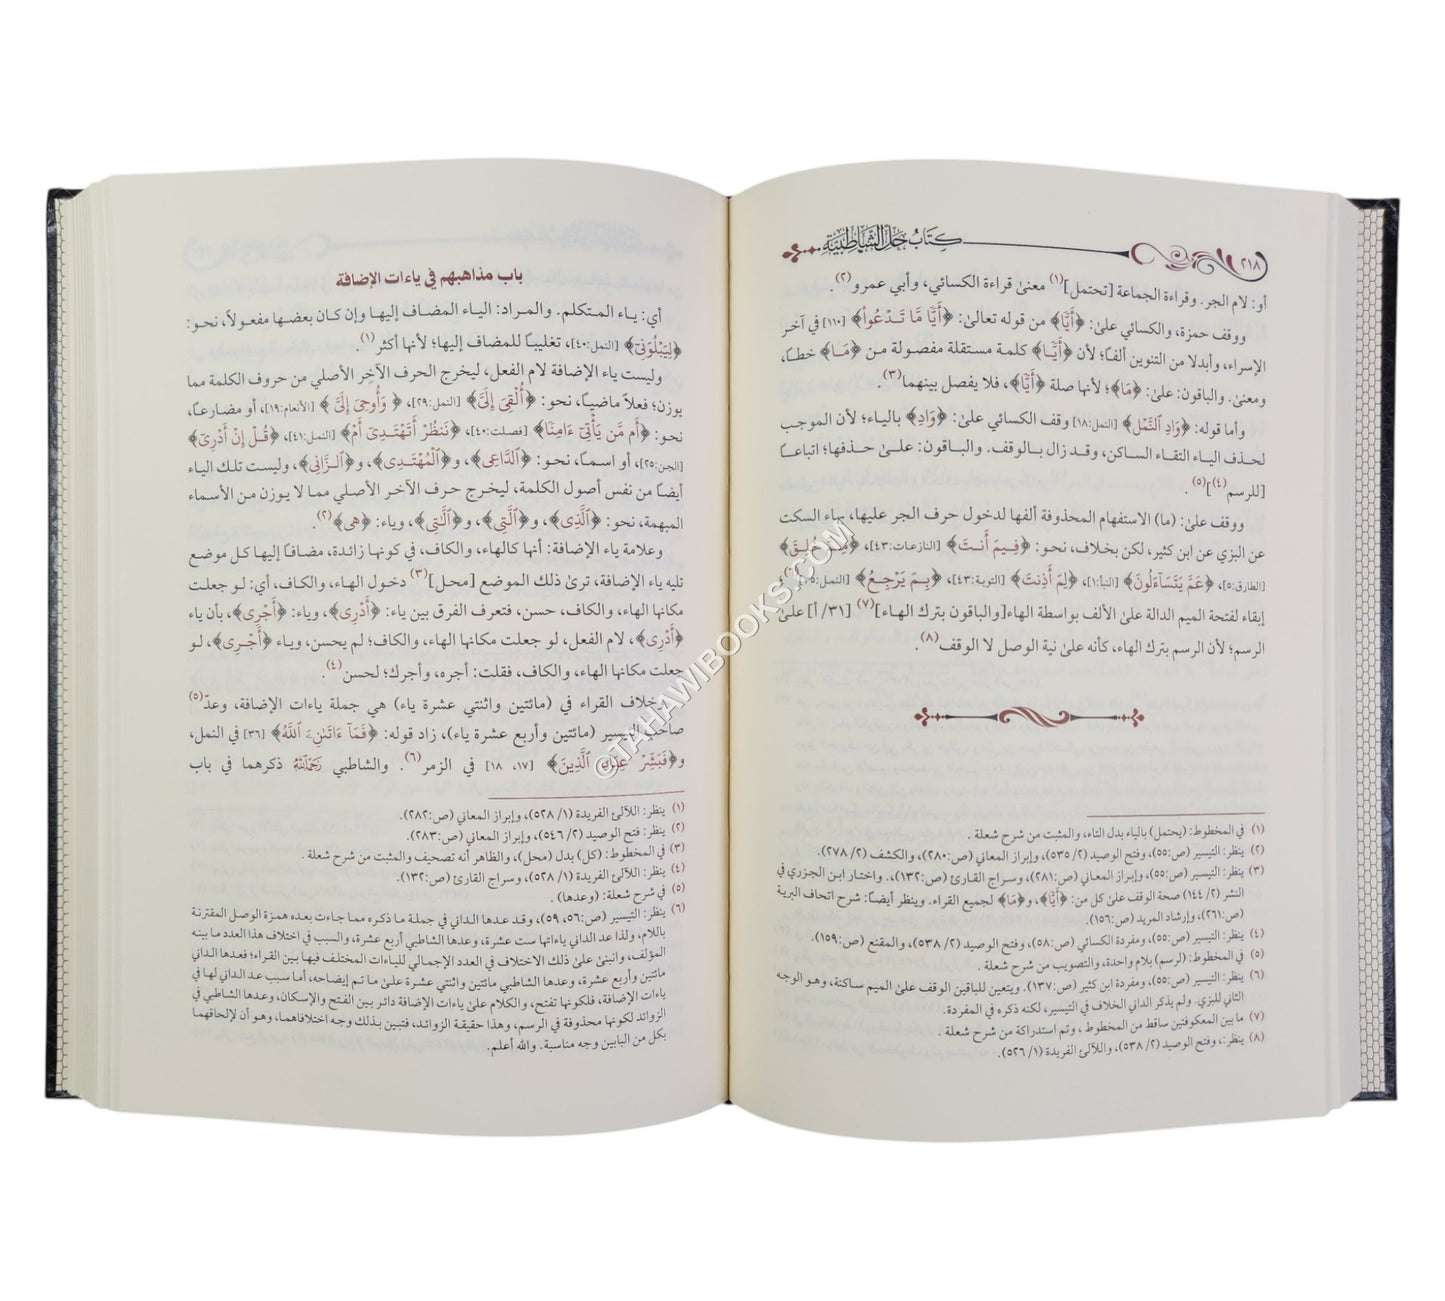 ٢١٨
كِتَابُ حَلِّ الشَّاطِبِيَّة
أو: لام الجر. وقراءة الجماعة [تحتمل](١) معنىٰ قراءة الكسائي، وأبي عمرو(٢).
ووقف حمزة، والكسائي علىٰ: ﴿أَيًّا﴾ من قوله تعالىٰ: ﴿أَيًّا مَّا تَدْعُوا۟﴾ [١١٠] في آخر
الإسراء، وأبدلا من التنوين ألفًا؛ لأن ﴿أَيًّا﴾ كلمة مستقلة مفصولة من ﴿مَا﴾ خطًا،
ومعنىٰ. والباقون: علىٰ: ﴿مَا﴾؛ لأنها صلة ﴿أَيًّا﴾، فلا يفصل بينهما(٣).
وأما قوله: ﴿وَادِ ٱلنَّمْلِ﴾ [النمل:١٨] وقف الكسائي علىٰ: ﴿وَادِ﴾ بالياء؛ لأن الموجب
لحذف الياء التقاء الساكن، وقد زال بالوقف. والباقون: علىٰ حذفها؛ اتباعًا
[للرسم(٤)](٥).
ووقف علىٰ: (ما) الاستفهام المحذوفة ألفها لدخول حرف الجر عليها، بهاء السكت
عن البزي عن ابن كثير، لكن بخلاف، نحو: ﴿فِيمَ أَنتَ﴾ [النازعات:٤٣]، ﴿مِمَّ خُلِقَ﴾
[الطارق:٥]، ﴿عَمَّ يَتَسَآءَلُونَ﴾ [النبأ:١]، ﴿لِمَ أَذِنتَ﴾ [التوبة:٤٣]، ﴿بِمَ يَرْجِعُ﴾ [النمل:٣٥](٦)؛
إبقاء لفتحة الميم الدالة علىٰ الألف بواسطة الهاء[والباقون بترك الهاء](٧) [٣١/ أ] علىٰ
الرسم؛ لأن الرسم بترك الهاء، كأنه علىٰ نية الوصل لا الوقف(٨).
(١) في المخطوط: (يحتمل) بالياء بدل التاء، والمثبت من شرح شعلة .
(٢) ينظر: التيسير (ص:٥٥)، وفتح الوصيد (٢/ ٥٣٥)، وإبراز المعاني (ص:٢٨٠)، والكشف (٢/ ٢٧٨).
(٣) ينظر: التيسير (ص:٥٥)، وإبراز المعاني (ص:٢٨١)، وسراج القارئ (ص:١٣٢)،. واختار ابن الجزري في
النشر (٢/ ١٤٤) صحة الوقف علىٰ كل من: ﴿أَيًّا﴾، و﴿مَا﴾ لجميع القراء. وينظر أيضًا: شرح اتحاف البرية
(ص:٢٦١)، وإرشاد المريد (ص:١٥٦).
(٤) ينظر: التيسير (ص:٥٥)، ومفردة الكسائي (ص:٥٨)، وفتح الوصيد (٢/ ٥٣٨)، والمقنع (ص:١٥٩).
(٥) في المخطوط: (لرسم) بلام واحدة، والتصويب من شرح شعلة .
(٦) ينظر: التيسير (ص:٥٥)، ومفردة ابن كثير (ص:١٣٧). ويتعين للباقين الوقف علىٰ الميم ساكنة، وهو الوجه
الثاني للبزي. ولم يذكر الداني الخلاف في التيسير، لكنه ذكره في المفردة.
(٧) ما بين المعكوفتين ساقط من المخطوط ، وتم استدراكة من شرح شعلة .
(٨) ينظر:، وفتح الوصيد (٢/ ٥٣٨)، واللآلئ الفريدة (١/ ٥٢٦).
باب مذاهبهم في ياءات الإضافة
أي: ياء المتكلم. والمراد: الياء المضاف إليها وإن كان بعضها مفعولاً، نحو:
﴿لِيَبْلُوَنِىٓ﴾ [النمل:٤٠]، تغليبًا للمضاف إليها؛ لأنها أكثر(١).
وليست ياء الإضافة لام الفعل، ليخرج الحرف الآخِر الأصلي من حروف الكلمة مما
يوزن؛ فعلاً ماضيًا، نحو: ﴿أُلْقِىَ إِلَىَّ﴾ [النمل:٢٩]، ﴿ وَأُوحِىَ إِلَىَّ ﴾ [الأنعام:١٩]، أو مضارعًا،
نحو: ﴿أَم مَّن يَأْتِىٓ ءَامِنًا﴾ [فصلت:٤٠]، ﴿نَنظُرْ أَتَهْتَدِىٓ أَمْ﴾ [النمل:٤١]، ﴿قُلْ إِنْ أَدْرِىٓ﴾
[الجن:٢٥]، أو اسمًا، نحو: ﴿ٱلدَّاعِى﴾، و﴿ٱلْمُهْتَدِى﴾، و﴿ٱلزَّانِى﴾، وليست تلك الياء
أيضًا من نفس أصول الكلمة، ليخرج حرف الآخر الأصلي مما لا يوزن من الأسماء
المبهمة، نحو: ﴿ٱلَّذِى﴾، و﴿ٱلَّتِى﴾، و﴿ٱلَّٰتِى﴾، وياء: ﴿هِىَ﴾(٢).
وعلامة ياء الإضافة: أنها كالهاء، والكاف، في كونها زائدة، مضافًا إليها كل موضع
تليه ياء الإضافة، ترىٰ ذلك الموضع [محل](٣) دخول الهاء، والكاف، أي: لو جعلت
مكانها الهاء، والكاف، حسن، فتعرف الفرق بين ياء: ﴿أَدْرِى﴾، وياء: ﴿أَجْرِى﴾، بأن ياء
﴿أَدْرِى﴾، لام الفعل، لو جعلت مكانها الهاء، والكاف؛ لم يحسن، وياء ﴿أَجْرِى﴾، لو
جعلت مكانها الهاء، والكاف، فقلت: أجره، وأجرك؛ لحسن(٤).
وخلاف القراء في (مائتين واثنتي عشرة ياء) هي جملة ياءات الإضافة، وعدّ(٥)
صاحب التيسير (مائتين وأربع عشرة ياء)، زاد قوله: ﴿فَمَآ ءَاتَىٰنِۦَ ٱللَّهُ﴾ [٣٦] في النمل،
و﴿فَبَشِّرْ عِبَادِ ٱلَّذِينَ﴾ [١٧، ١٨] في الزمر(٦). والشاطبي رَحِمَهُ ٱللَّهُ ذكرهما في باب
(١) ينظر: اللآلئ الفريدة (١/ ٥٢٨)، وإبراز المعاني (ص:٢٨٢).
(٢) ينظر: فتح الوصيد (٢/ ٥٤٦)، وإبراز المعاني (ص:٢٨٣).
(٣) في المخطوط: (كل) بدل (محل)، والظاهر أنه تصحيف والمثبت من شرح شعلة .
(٤) ينظر: اللآلئ الفريدة (١/ ٥٢٨)، وسراج القارئ (ص:١٣٢).
(٥) في شرح شعلة: (وعدها) .
(٦) ينظر: التيسير (ص:٥٦، ٥٩)، وقد عدها الداني في جملة ما ذكره مما جاءت بعده همزة الوصل المقترنة
باللام، ولذا عد الداني ياءاتها ست عشرة، وعدها الشاطبي أربع عشرة، والسبب في اختلاف هذا العدد ما بينه
المؤلف، وانبنىٰ علىٰ ذلك الاختلاف في العدد الإجمالي للياءات المختلف فيها بين القراء؛ فعدها الداني
مائتين وأربع عشرة، وعدها الشاطبي مائتين واثنتي عشرة علىٰ ما تم إيضاحه، أما سبب عد الداني لها في
ياءات الإضافة، فلكونها تفتح، والكلام علىٰ ياءات الإضافة دائر بين الفتح والإسكان، وعدها الشاطبي في
الزوائد لكونها محذوفة في الرسم، وهذا حقيقة الزوائد، فتبين بذلك وجه اختلافهما، وهو أن لإلحاقهما
بكل من البابين وجه مناسبة. والله أعلم.
©TAHAWIBOOKS.COM